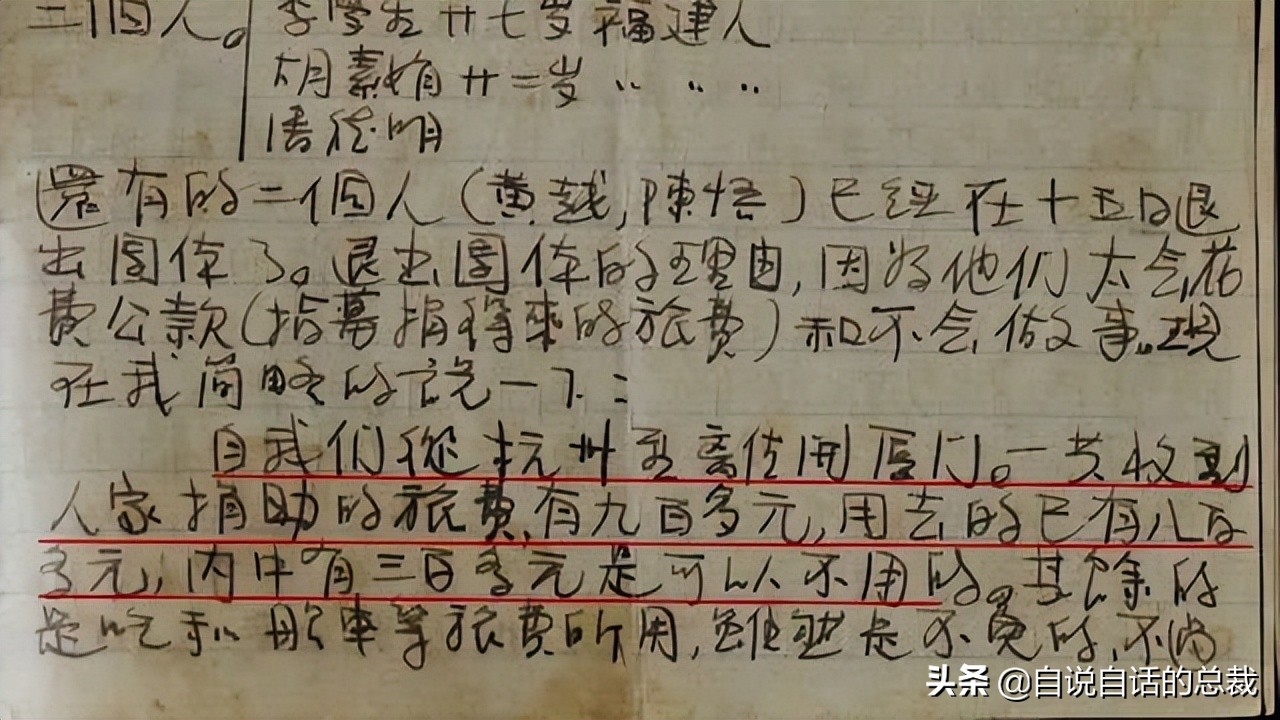 三個人。李学生 廿七岁 福建人
胡素娟 廿二岁 〃 〃 〃
潘德明
還有的二個人(黄越,陳悟)已經在十五日退
出团体了。退出团体的理由,因为他们太会花
費公款(指募捐得來的旅費)和不会做事。現
在我简略的説一下:
自我们從杭州至离佐開厦门。一共收到
人家捐助的旅費,有九百多元,用去的已有八百
多元,内中有三百多元是可以不用的。其餘的
是吃和船車等旅費所用,雖然是不免的,不尚
头条 @自说自话的总裁